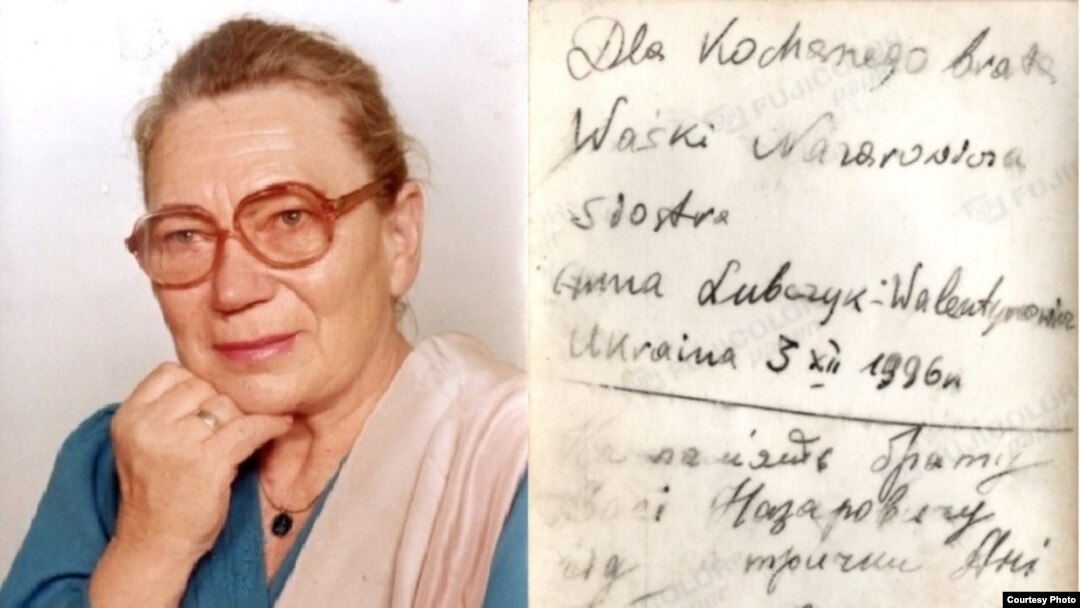 Dla Kochanego brata
Waśki Nazarowicza
Siostra
Anna Łubczyk-Walentynowicz
Ukraina 3 XII 1996r
На память брату
Васі Назаровичу
від сестрички Ані
FUJICOLOR
paper
Courtesy Photo